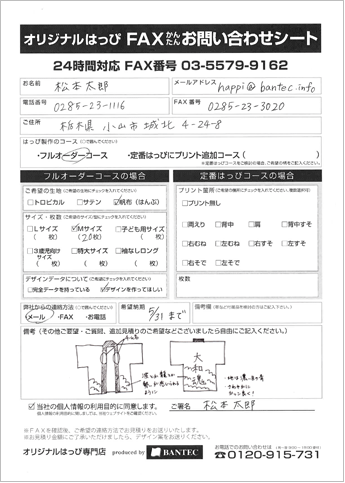 オリジナルはっぴ FAXかんたんお問い合わせシート
24時間対応 FAX番号 03-5579-9162
お名前 松本太郎 メールアドレス happi@bantec.info
電話番号 0285-23-1116 FAX番号 0285-23-3020
ご住所 栃木県 小山市城北 4-24-8
はっぴ製作のコース
・フルオーダーコース ・定番はっぴにプリント追加コース( )
フルオーダーコースの場合 定番はっぴコースの場合
ご希望の生地(ご希望の生地にチェックを入れてください)
□トロピカル □サテン ☑帆布(はんぷ)
サイズ・枚数
□Lサイズ ☑Mサイズ □子ども用サイズ
( 枚) (20枚) ( 枚)
□3歳児向けサイズ □特大サイズ □袖なしロング
( 枚) ( 枚) ( 枚)
デザインデータについて
□完全データを持っている ☑デザインを作ってほしい
プリント箇所
□プリント無し
□両えり □背中 □肩 □背中すそ
□右むね □左むね □右すそ □左すそ
□右そで □左そで
枚数
弊社からの連絡方法
・メール ・FAX
希望納期 5/31まで
備考欄
備考(その他ご要望・ご質問、追加見積りのご希望などございましたら自由にご記入ください。)
大和魂
☑当社の個人情報の利用目的に同意します。 ご署名 松本太郎
※FAXを確認後、ご連絡の連絡方法でお見積りをお送りいたします。
※お見積り金額にご了承いただけましたら、デザイン案をお送りください。
オリジナルはっぴ専門店 produced by BANTEC
お電話でのお問い合わせは
0120-915-731